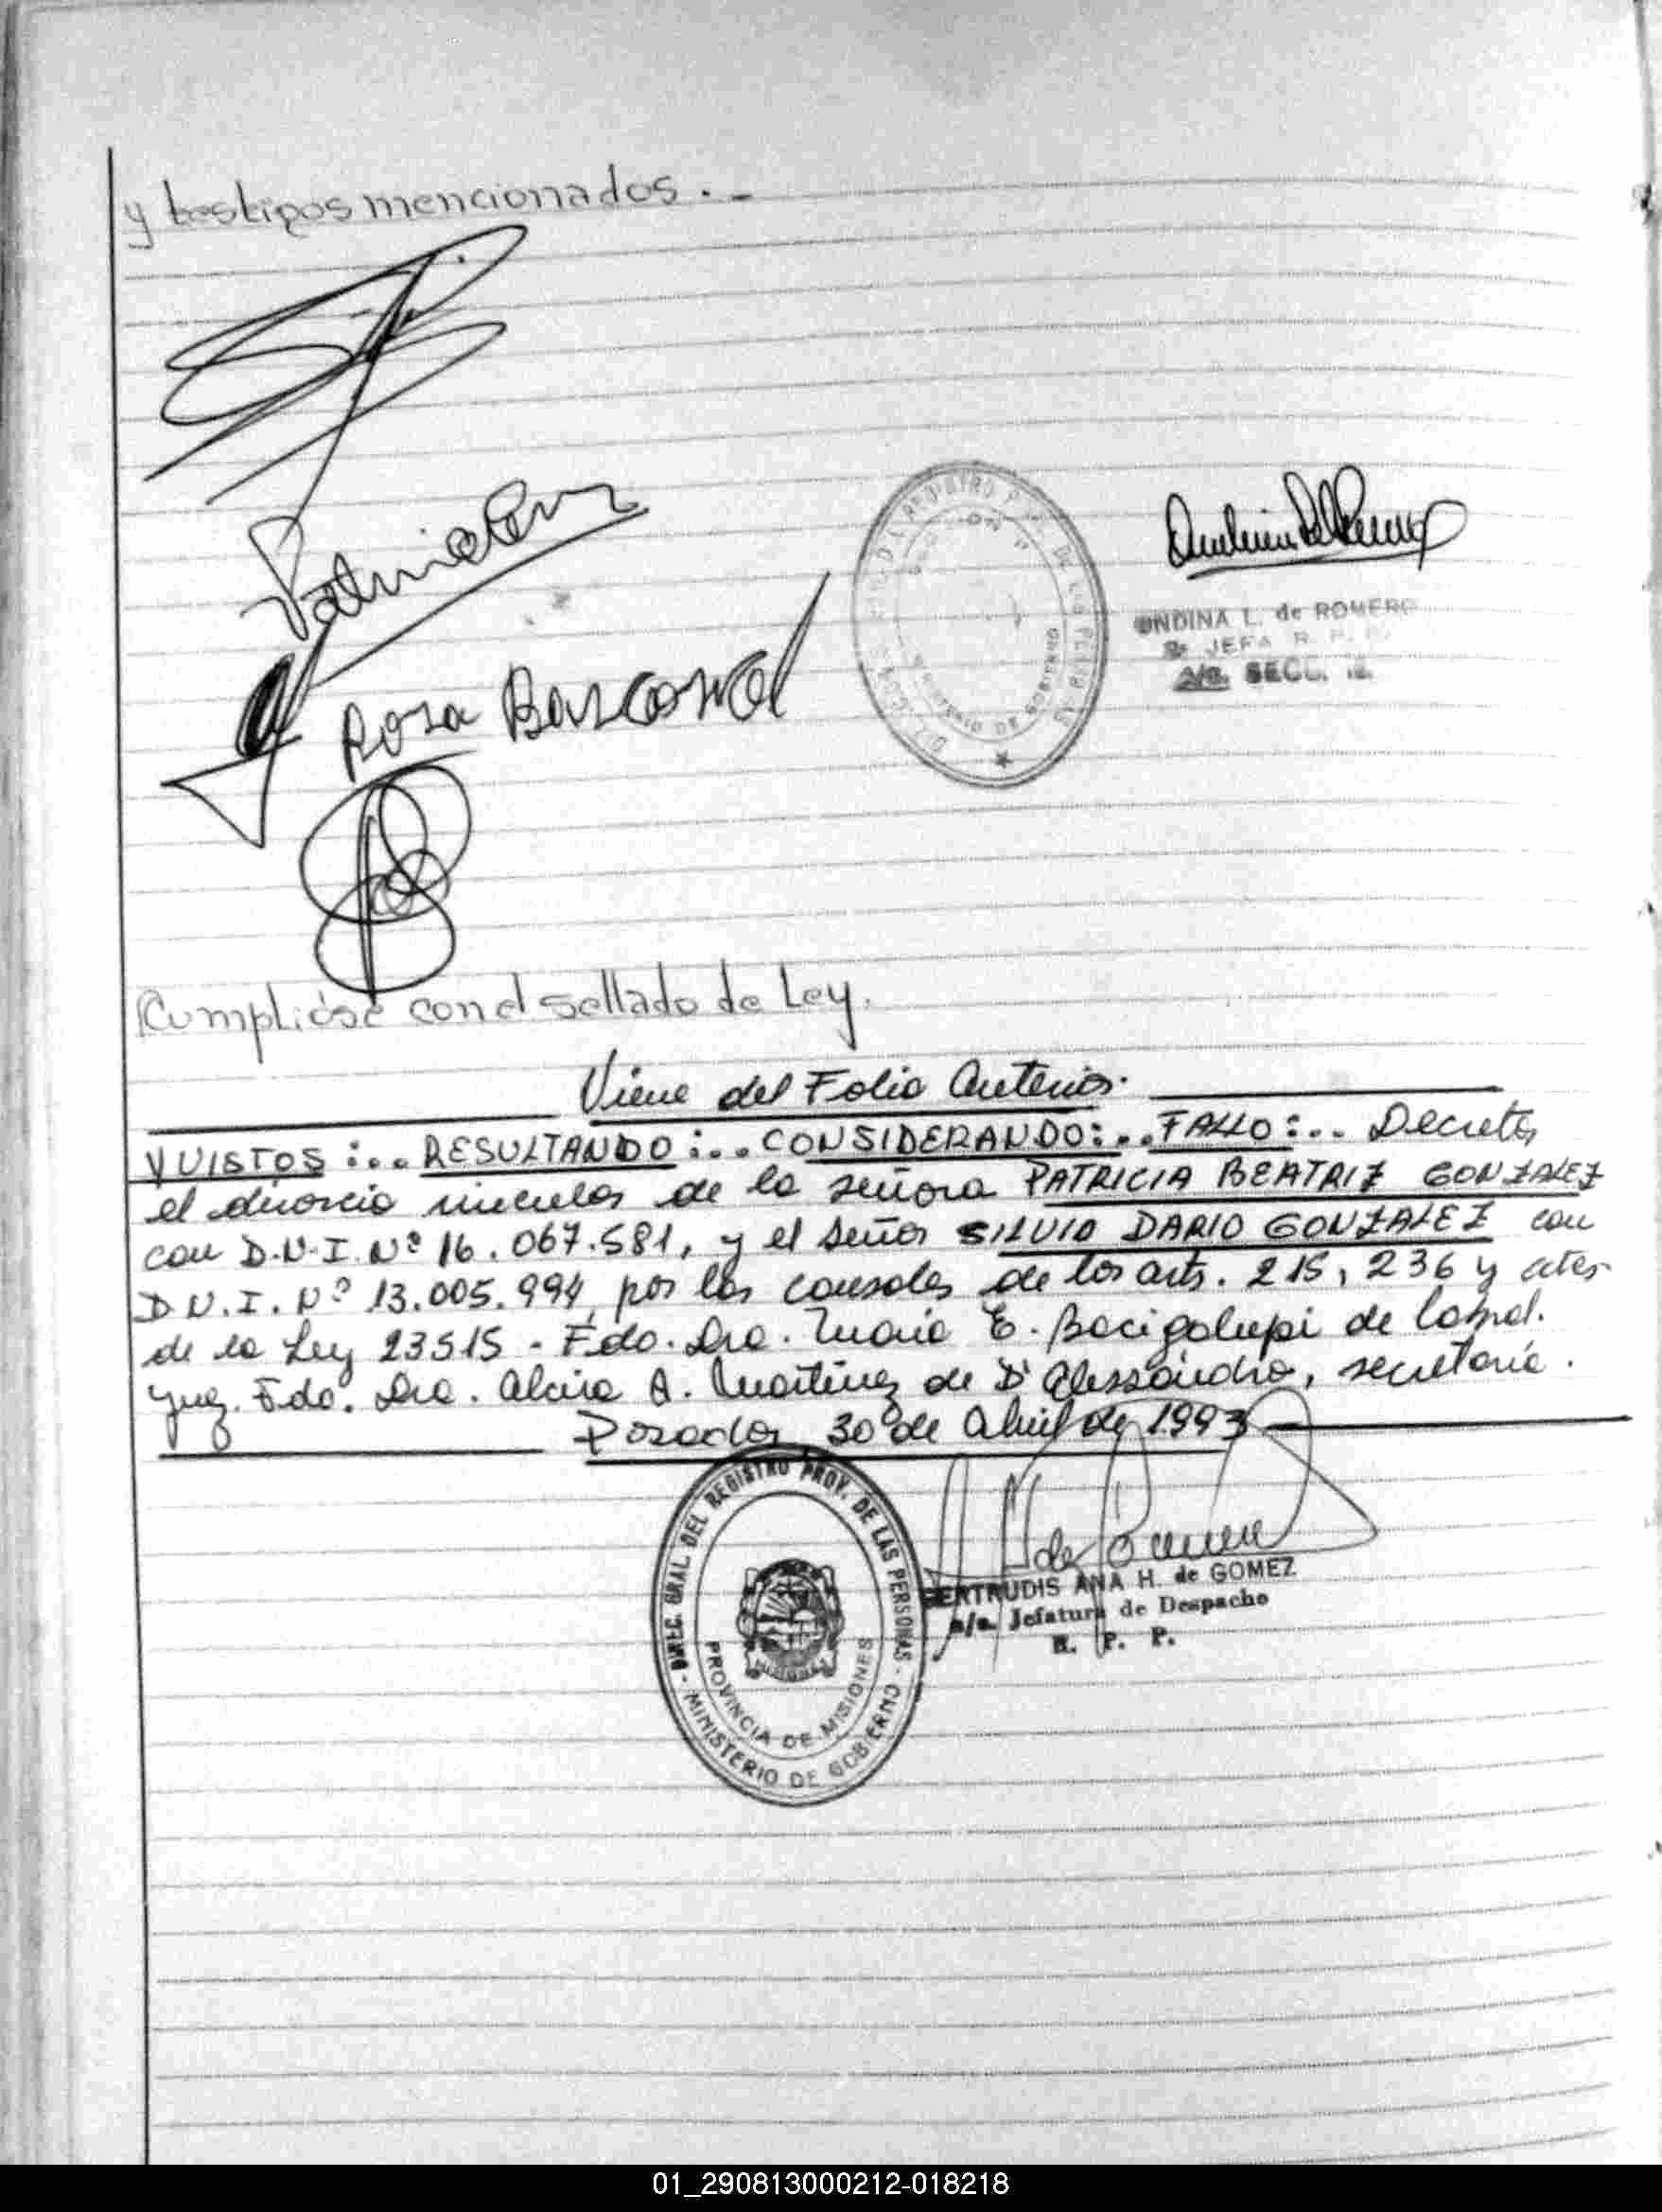 y testigos mencionados.-
Rosa
ONDINA L. de ROMERO
JEFA R. P. P.
A/c. SECC.
MINISTERIO DE GOBIERNO
Cumplióse con el sellado de Ley.
Viene del Folio Anterior.
VUISTOS:... RESULTANDO:... CONSIDERANDO:... FALLO:... Decretar
el divorcio vincular de la señora PATRICIA BEATRIZ GONZALEZ
con D.N.I. Nº 16.067.581, y el señor SILVIO DARIO GONZALEZ con
D.N.I. Nº 13.005.994, por las causales de los arts. 215, 236 y
de la Ley 23515 - Fdo. Dra. Maria E. Bacigalupi de
Juez. Fdo. Dra. Alcira A. Martinez de D'Alessandro, secretaria.
Posadas 30 de Abril de 1993
DIREC. GRAL. DEL REGISTRO PROV. DE LAS PERSONAS
PROVINCIA DE MISIONES
- MINISTERIO DE GOBIERNO -
GERTRUDIS ANA H. de GOMEZ
a/c. Jefatura de Despacho
R. P. P.
01_290813000212-018218